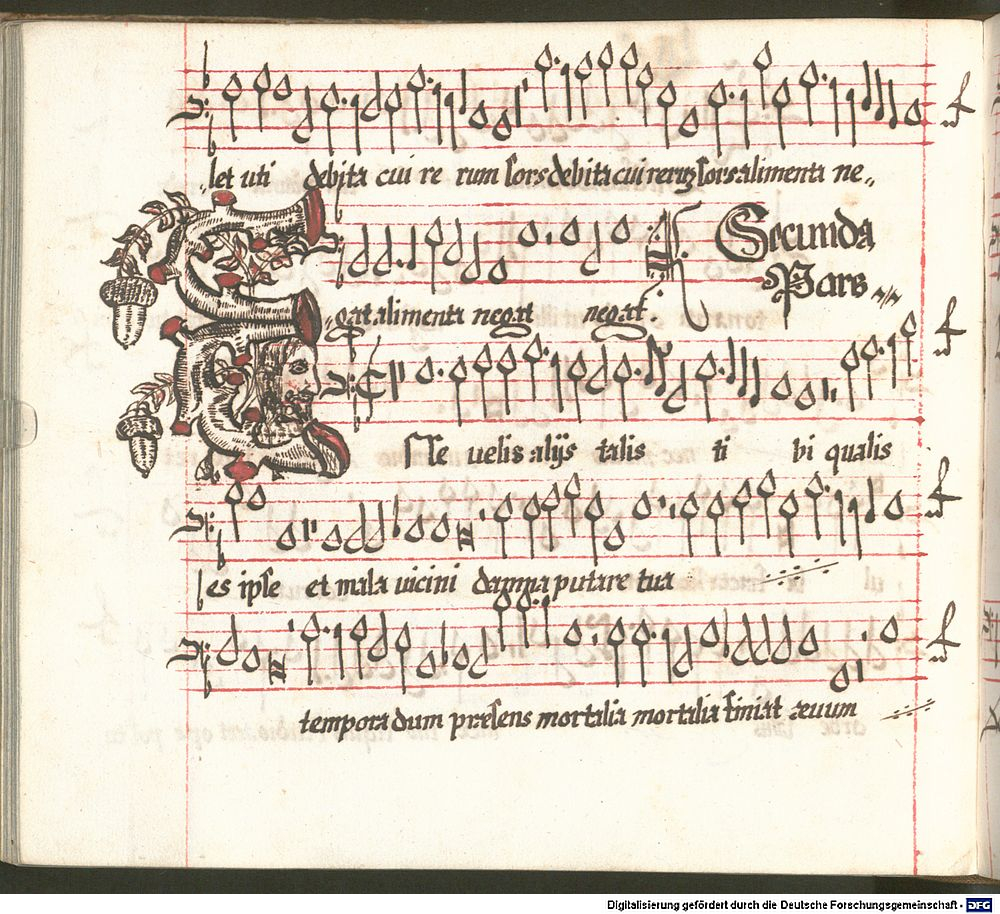 let uti debita cui re rum sors debita cui rerū sors alimenta ne
Secunda
Pars
gat alimenta negat negat.
Te uelis alijs talis ti bi qualis
es ipse et mala uicini damna putare tua
tempora dum præsens mortalia mortalia finiat æuum
Digitalisierung gefördert durch die Deutsche Forschungsgemeinschaft - DFG